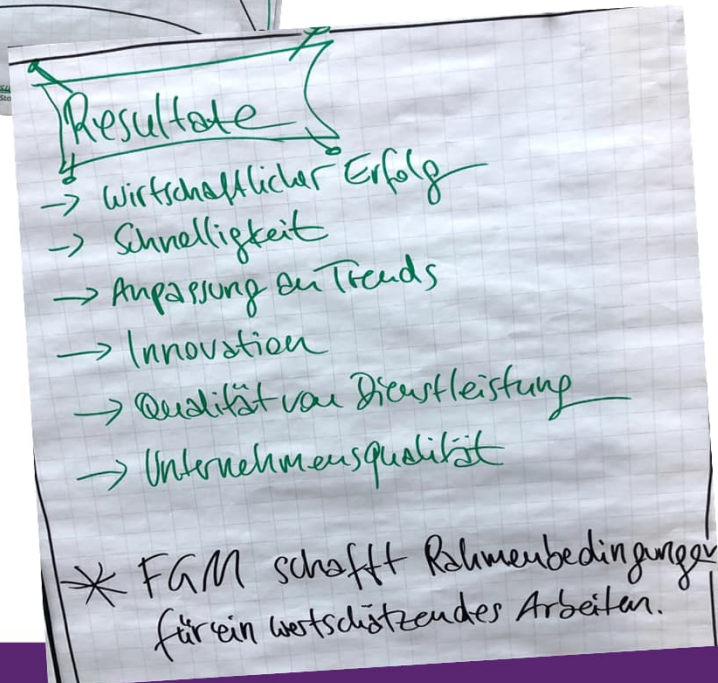 Resultate
-> Wirtschaftlicher Erfolg
-> Schnelligkeit
-> Anpassung an Trends
-> Innovation
-> Qualität von Dienstleistung
-> Unternehmensqualität
* FGM schafft Rahmenbedingungen
für ein wertschätzendes Arbeiten.